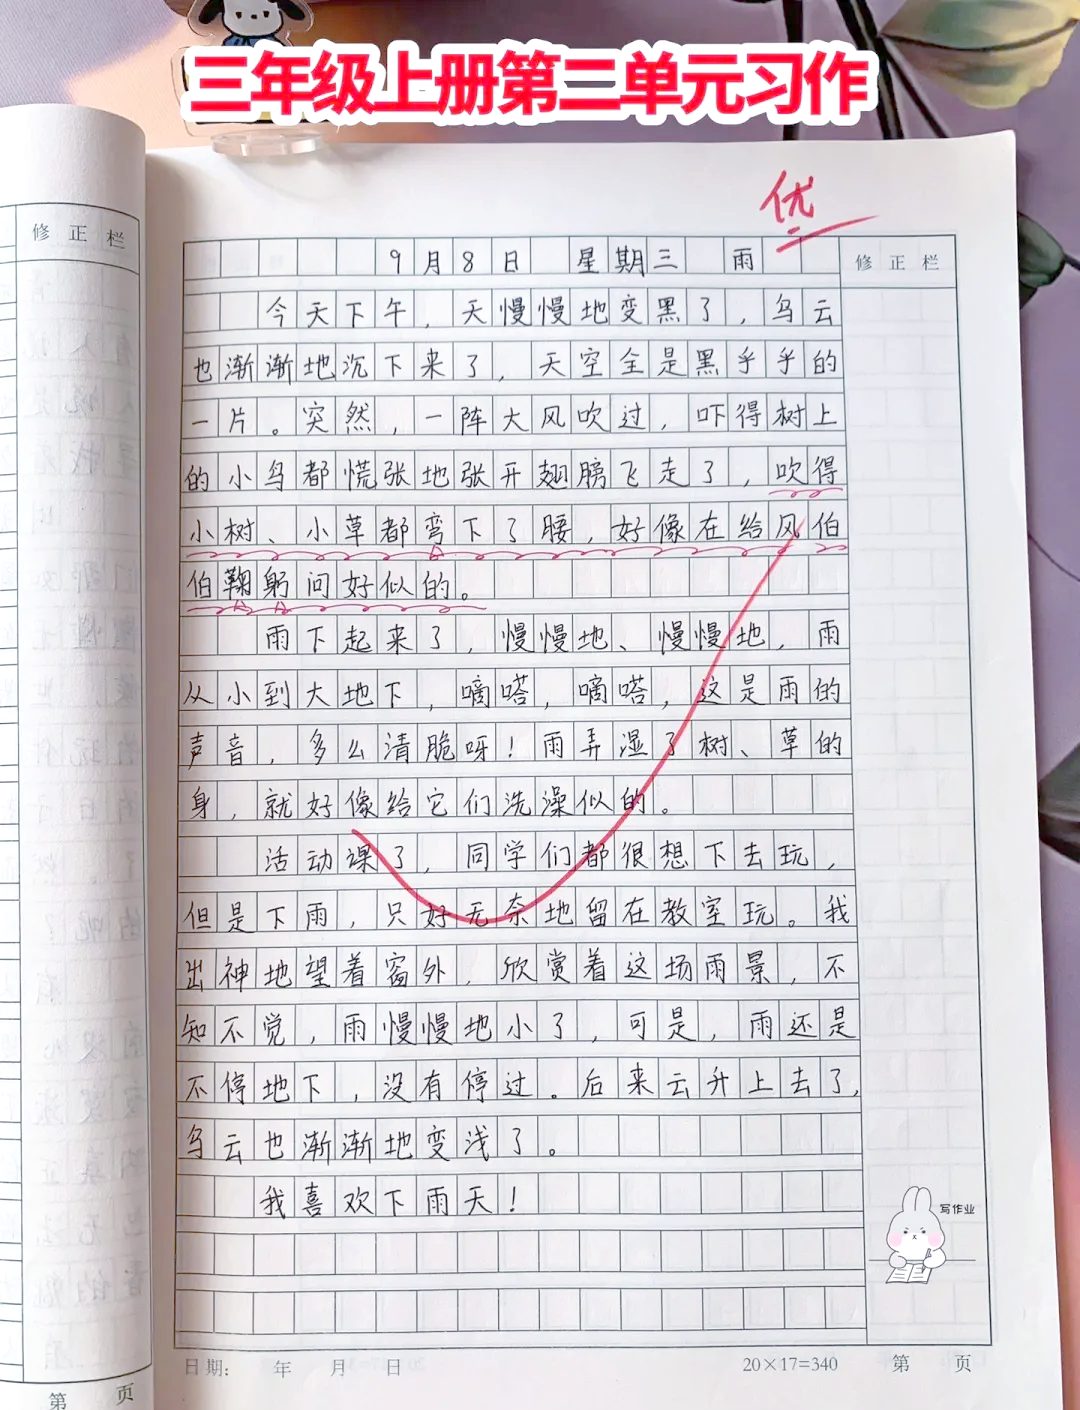 三年级上册第二单元习作
优
修正栏
9月8日 星期三 雨
修正栏
今天下午，天慢慢地变黑了，乌云
也渐渐地沉下来了，天空全是黑乎乎的
一片。突然，一阵大风吹过，吓得树上
的小鸟都慌张地张开翅膀飞走了，吹得
小树、小草都弯下了腰，好像在给风伯
伯鞠躬问好似的。
雨下起来了，慢慢地、慢慢地，雨
从小到大地下，嘀嗒，嘀嗒，这是雨的
声音，多么清脆呀！雨弄湿了树、草的
身，就好像给它们洗澡似的。
活动课了，同学们都很想下去玩，
但是下雨，只好无奈地留在教室玩。我
出神地望着窗外，欣赏着这场雨景，不
知不觉，雨慢慢地小了，可是，雨还是
不停地下，没有停过。后来云升上去了，
乌云也渐渐地变浅了。
我喜欢下雨天！
写作业
日期： 年 月 日
20×17=340 第 页
第 页